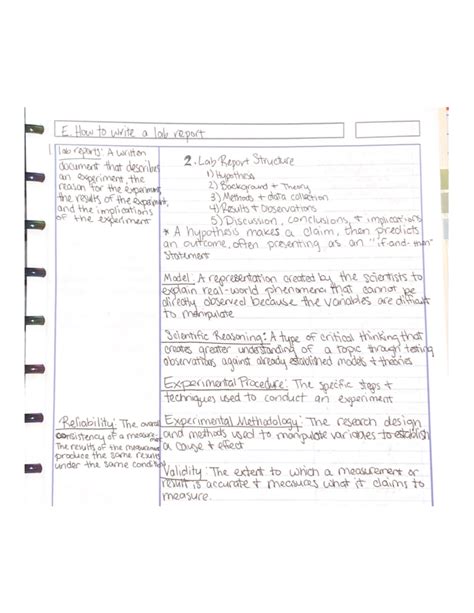 E. How to write a lab report
lab reports: A written
document that describes
an experiment, the
reason for the experiment,
the results of the experiment,
and the implications
of the experiment
2. Lab Report Structure
1) Hypothesis
2) Background + Theory
3) Methods + data collection
4) Results + Observations
5) Discussion, conclusions, + implications
* A hypothesis makes a claim, then predicts
an outcome, often presenting as an "if-and-then"
statement
Model: A representation created by the scientists to
explain real-world phenomena that cannot be
directly observed because the variables are difficult
to manipulate
Scientific Reasoning: A type of critical thinking that
creates greater understanding of a topic through testing
observations against already established models + theories
Experimental Procedure: The specific steps +
techniques used to conduct an experiment
Reliability: The overall
consistency of a measure
The results of the measurement
produce the same results
under the same conditions
Experimental Methodology: The research design
and methods used to manipulate variables to establish
a cause + effect
Validity: The extent to which a measurement or
result is accurate + measures what it claims to
measure.